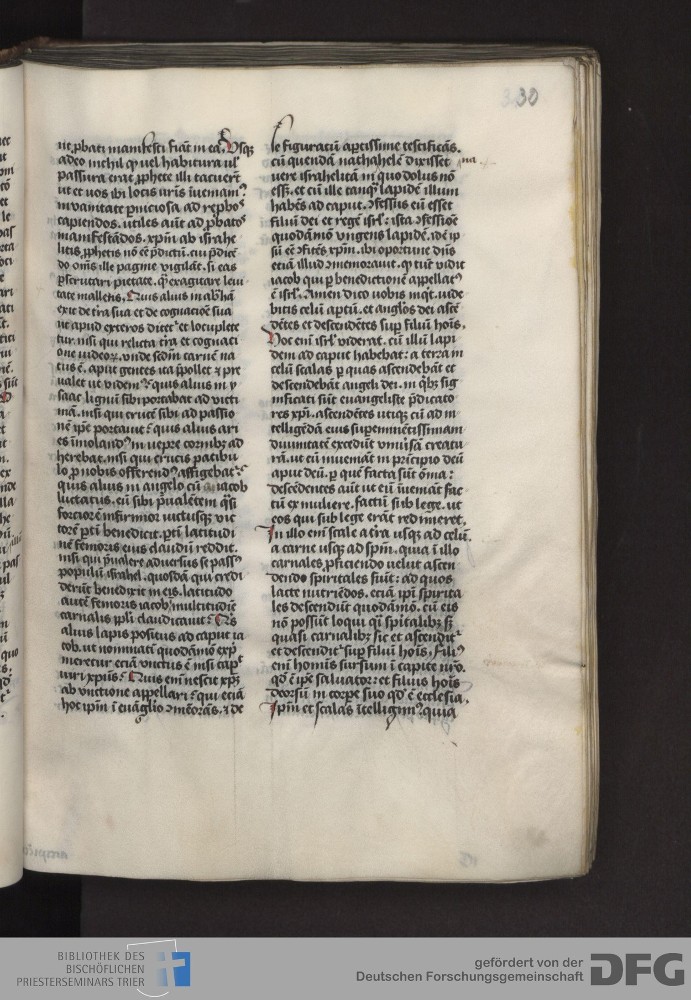 330
ut ꝓbati manifesti fiāt in ea. Usqꝫ
adeo nichil
passura erat ꝓphete illi tacuerūt
ut et vos ibi locis vr̄is iuveniam⁹
in vanitate
capiendos. utiles aūt ad ꝓbatos
manifestādos. xp̄m ab israhe
litis ꝓphetis nō eē p̄dictū. cui p̄dicē
do om̄s ille pagine vigilāt. si eas
pscrutari pietate. q̄ exagitare levi
tate mallens. Quis alius in abhā
exit de tra sua et de cognatiōe sua
ut apud exteros ditet᷑ et locuplete
tur. nisi qui relicta tra et cognati
one iudeoꝝ. unde sc̄dm carnē na
tus ē. aput gentes ita pollet ⁊ pre
valet ut videm⁹ quis alius in y
saac lignū sibi portabat ad victi
mā. nisi qui crucē sibi ad passio
nē ip̄e portavit quis alius ari
es imoland⁹ in vepre cornibꝫ ad
herebat. nisi qui crucis patibu
lo ꝓ nobis offerend⁹ affigebat᷑
quis alius in angelo cū iacob
luctatus. cū sibi p̄valētem q̄si
forciorē infirmior victusqꝫ vic
torē pti benedicit. pti latitudi
nē femoris eius claudū reddit.
nisi qui p̄valere adversus se pass⁹
populū isrāhel. quosdā qui credi
derūt benedixit in eis. latitudo
autē femoris iacob multitudīe
carnalis ppli claudicavit Quis
alius lapis positus ad caput ia
cob. ut nominati quodāmō exp̄
meretur eciā unctus ē nisi cap⁹
viri xp̄us Quis eni nescit xp̄ꝫ
ab unctione appellari qui eciā
hoc ip̄m ī evāglio ɔmēorās. ⁊ de
se figuratū aptissime testificās.
cū quendā nathahelē dixisset
vere israhelitā in quo dolus nō
esset. et cū ille tanqꝫ lapidē illum
habēs ad caput. ɔfessus eū esset
filiū dei et regē isrl. ista ɔfessiōe
quodāmō ungens lapidē. id ē ip
sū eē ɔfitēs xp̄m. ibi oportune dn̄s
etiā illud ɔmemoravit. qꝫ tūc vidit
iacob qui ꝑ benedictionē appellat⁹
ē isrl. Amen dico vobis inqt. vide
bitis celū aptū. et anglōs dei ascē
dētes et descendētes sup filiū hoīs.
Hoc enī isrl viderat. cū illū lapi
dem ad caput habebat. a terra in
celū scalas ꝑ quas ascendebāt et
descendebāt angeli dei. in qꝫbꝫ sig
nificati sūt euangeliste p̄dicato
res xpī. ascendētes utiqꝫ cū ad in
telligēdā eius supeminētissimam
divinitatē excedūt univsā creatu
rā. ut eū inveniāt in prīcipio deū
aput deū. ꝑ quē facta sūt om̄ia.
descēdentes aūt ut eū īveniāt fac
tū ex muliere. factū sub lege. ut
eos qui sub lege erāt redimeret.
In illo enī scale a tra usqꝫ ad celū.
a carne usqꝫ ad spm̄. quia ī illo
carnales ꝓficiendo velut ascen
dendo spiritales fiūt. ad quos
lacte nutriēdos. eciā ip̄i spirita
les descendūt quodāmō. cū eis
nō possūt loqui qꝫ spitalibꝫ sꝫ
quasi carnalibꝫ sic et ascendit᷑
et descendit᷑ sup filiū hoīs. Fili⁹
enī hominīs sursum ī capite nr̄o.
qd̄ ē ip̄e salvator. et filius hoīs
deorsū in corpe suo qd̄ ē ecclesia.
Ip̄m et scalas ītelligim⁹. quia
BIBLIOTHEK DES
BISCHÖFLICHEN
PRIESTERSEMINARS TRIER
gefördert von der
Deutschen Forschungsgemeinschaft
DFG